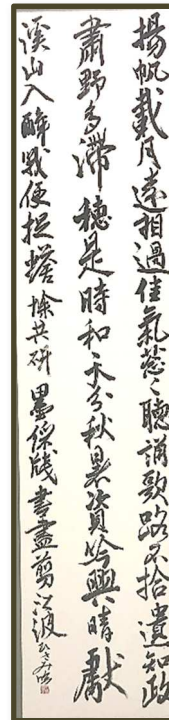 揚帆載月遠相過佳氣葱々聽誦歌路不拾遺知政
肅野多滯穗是時和天分秋暑資吟興晴獻
溪山入醉哦便捉蟾蜍共研墨綵牋書盡剪江波